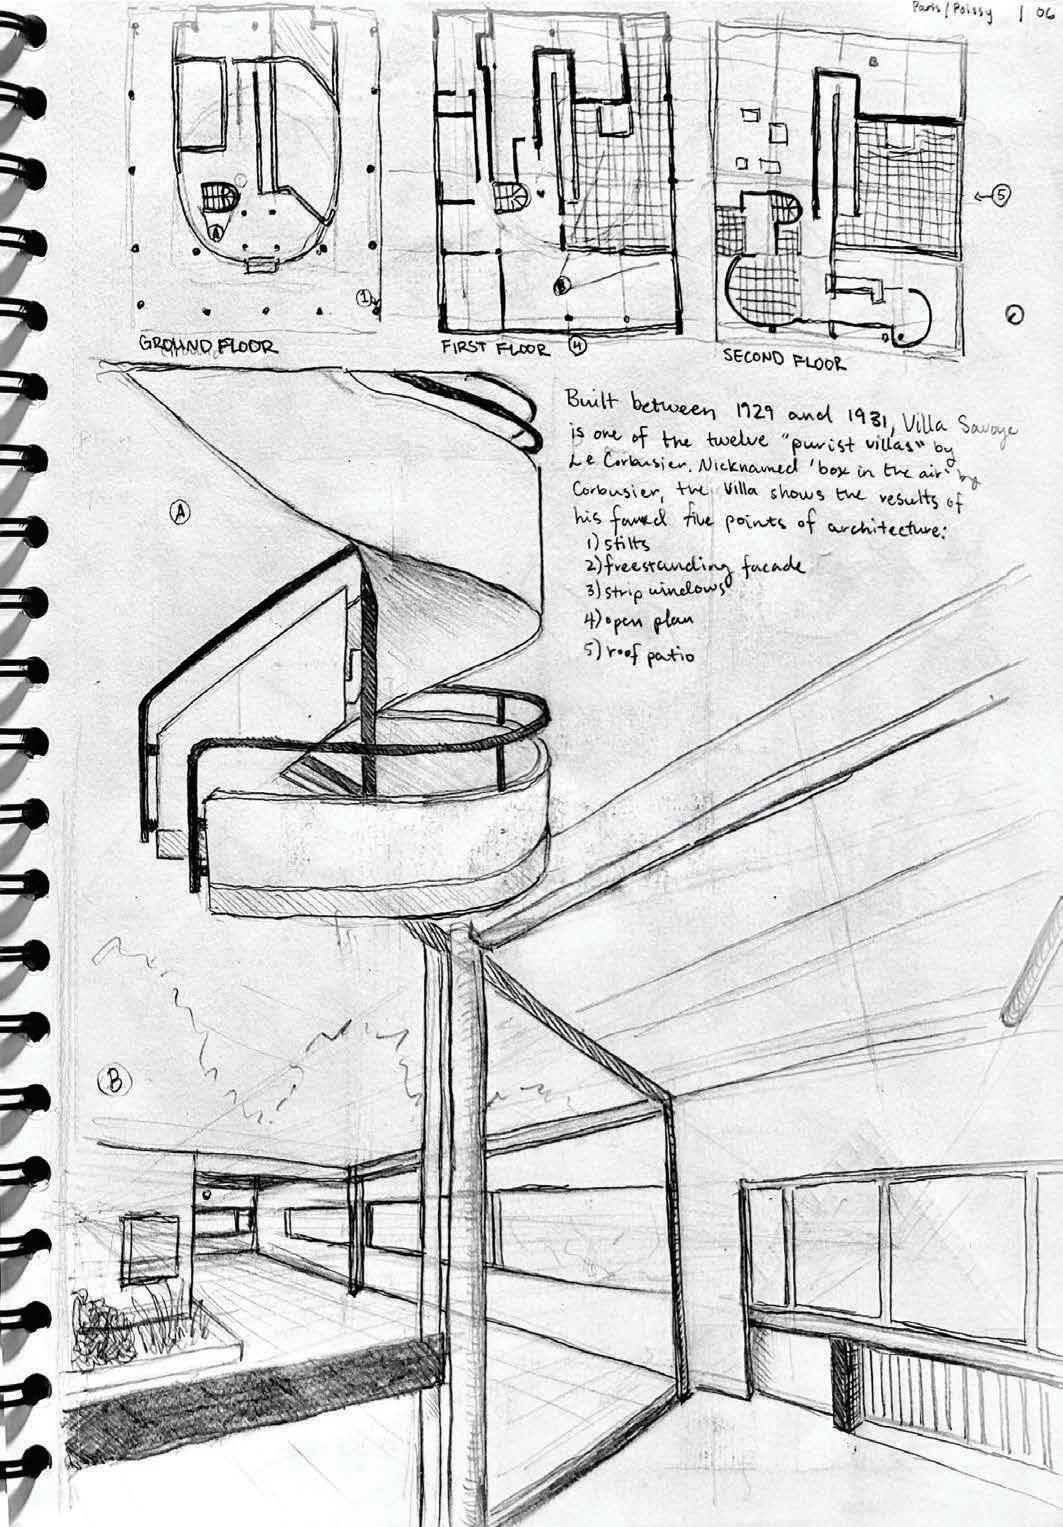 Paris/Poissy | 06
1
A
GROUND FLOOR
B
FIRST FLOOR 4
B
5
SECOND FLOOR
Built between 1929 and 1931, Villa Savoye
is one of the twelve "purist villas" by
Le Corbusier. Nicknamed 'box in the air' by
Corbusier, the villa shows the results of
his famed five points of architecture:
1) stilts
2) freestanding facade
3) strip windows
4) open plan
5) roof patio
A
B